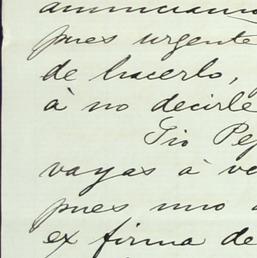 anunciamo
pues urgente
de hacerlo,
à no decirle
Tio Pep
vayas à ve
pues uno
ex firma de